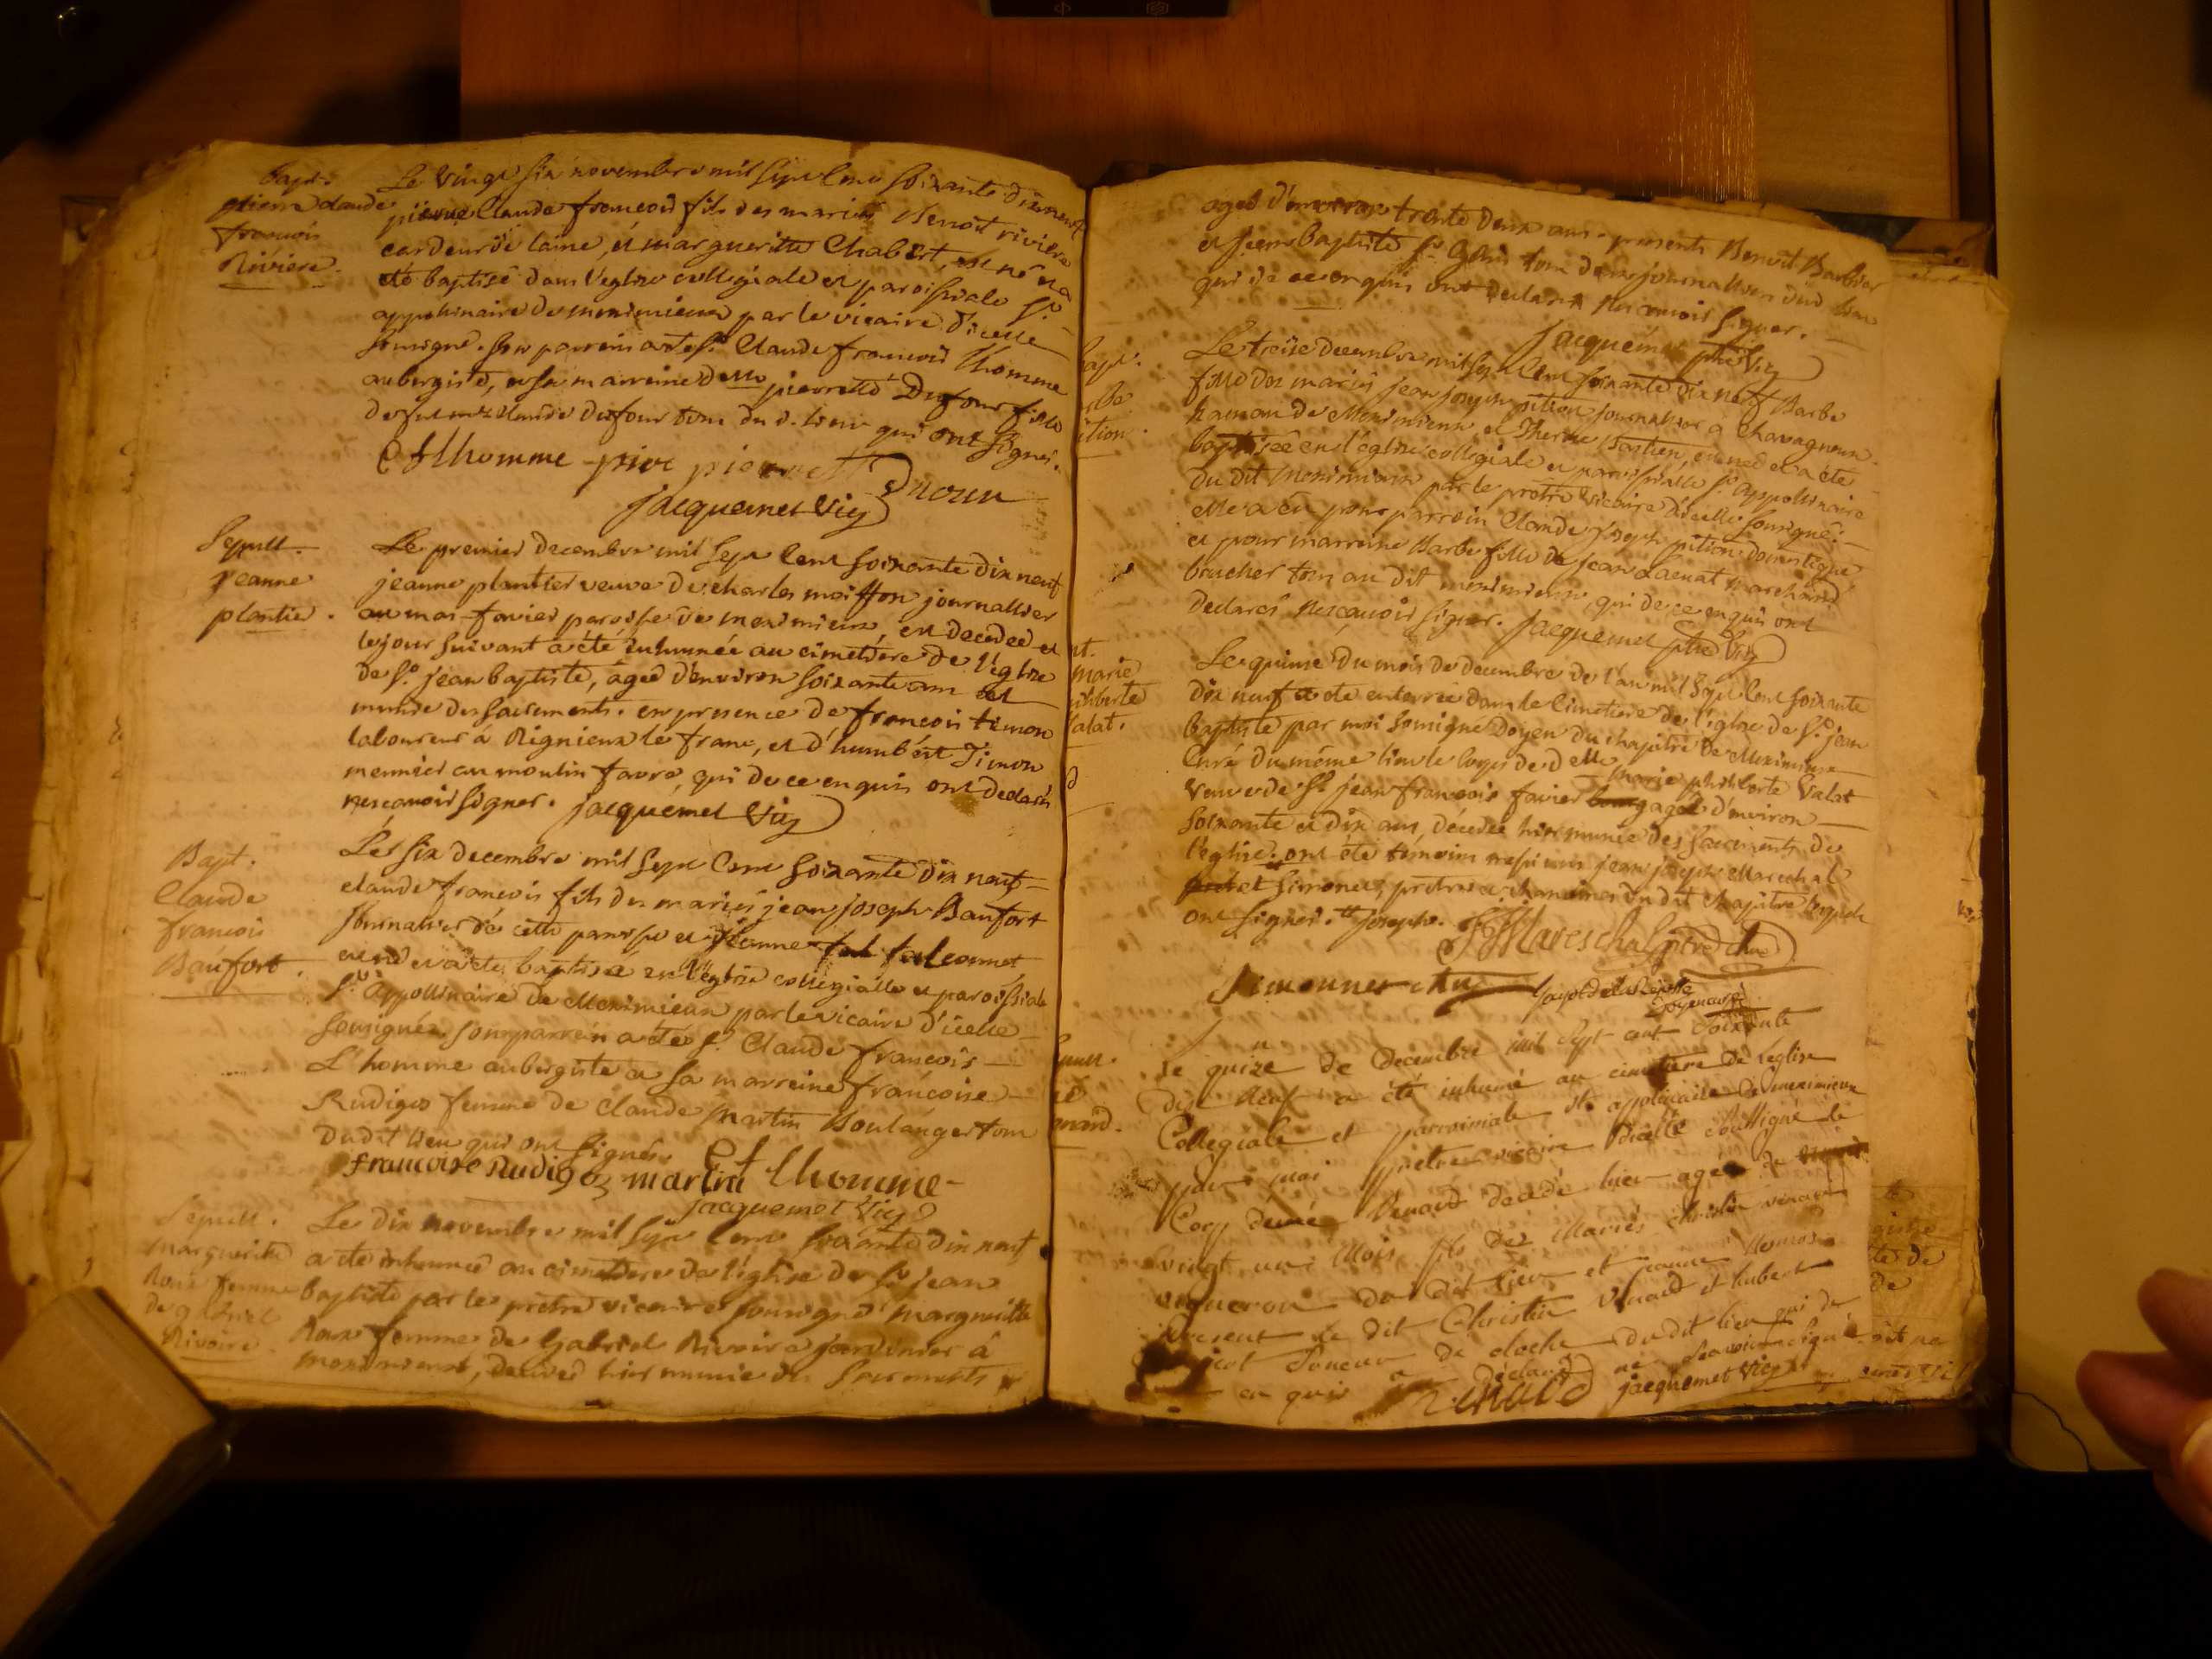 Bapt.
pierre claude
francois
Riviere.
Le vingt six novembre mil sept cent soixante dixneuf
pierre Claude francois fils des mariés Benoit riviere
cardeur de laine, et marguerite Chabert, est né et a
eté baptisé dans l'eglise collegiale et paroissiale St.
appollinaire de meximieux par le vicaire d'icelle
soussigné. son parrein a eté Sr. Claude francois lhomme
aubergiste, et sa marreine delle pierrette Dufour fille
de Dufour tous du d. lieu qui ont signés.
Cf lhomme pierrette
Jacquemet vic
Sepult.
jeanne
plantier.
Le premier decembre mil sept cent soixante dix neuf
jeanne plantier veuve de charles moiffon journallier
au mas favier paroisse de meximieux, est decedée et
le jour suivant a été inhumée au cimetiere de l'eglise
de St. jean baptiste, agée d'environ soixante ans et
munie des sacrements. en presence de francois timon
laboureur a Rignieux le franc, et d'humbert Timon
meunier au moulin favre, qui de ce enquis ont declarés
ne scavoir signer. jacquemet vic
Bapt.
Claude
francois
Baufort.
Le six decembre mil sept cent soixante dix neuf
claude francois fils des mariés jean joseph Baufort
journalier de cette paroisse et jeanne falconnet
est né et a eté baptisé en l'eglise collegialle et paroissiale
St. appollinaire de Meximieux par le vicaire d'icelle
soussigné. son parrein a eté Sr. Claude francois
L'homme aubergiste et sa marreine francoise
Rudigoz femme de claude martin Boulanger tous
dudit lieu qui ont signés
francoise Rudigoz martin Cf lhomme
jacquemet vic
Sepult.
marguerite
Roux femme
de gabriel
Rivoire.
Le dix novembre mil sept cent soixante dix neuf
a eté inhumée au cimetiere de l'eglise de St. jean
baptiste par le pretre vicaire soussigné marguerite
Roux femme de Gabriel Rivoire jardinier à
meximieux, decedée hier munie des sacrements
agée d'environ trente deux ans. presents Benoit Barbier
et jean baptiste tous deux journaliers dud lieu
qui de ce enquis ont declaré ne scavoir signer.
jacquemet ptre vic
Bapt.
Le treize decembre mil sept cent soixante dix neuf Barbe
fille des mariés jean joseph pition journalier à Chavagneux
hameau de Meximieux et Therese Bastien, est née et a eté
baptisée en l'eglise collegiale et paroissialle St. appollinaire
du dit meximieux par le pretre vicaire d'icelle soussigné:
elle a eu pour parrein Claude joseph pition domestique
et pour marreine Barbe fille de jean marchand
boucher tous au dit meximieux, qui de ce enquis ont
declarés ne scavoir signer. Jacquemet ptre vic
marie
Le quinze du mois de decembre de l'an mil sept cent soixante
dix neuf a eté enterrée dans le cimetiere de l'eglise de St. jean
baptiste par moi soussigné doyen du chapitre de Meximieux
curé du même lieu le corps de delle marie philiberte Valat
veuve de Sr. jean francois favier agée d'environ
soixante et dix ans, décedée hier munie des sacrements de
l'eglise. ont eté temoins messieurs jean joseph Marechal
et Simonet, pretres et chanoines du dit chapitre lesquels
ont signés. joseph.
JJ Mareschal ptre chne
Simonnet chne
Doyen curé
Le quize de decembre mil sept cent soixante
dix neuf a été inhumé au cimetiere de l'eglise
Collegiale et parroissiale St. appolinaire de meximieux
par moi pretre vicaire d'icelle soussigné le
Corp Benoit decedé hier agée de
vingt un mois fils des Mariés christin
vigneron du dit lieu et jeanne
Present le dit Christin et hubert
Soneur de cloche du dit lieu qui de
ce en quis a déclaré ne scavoir signé
jacquemet vic